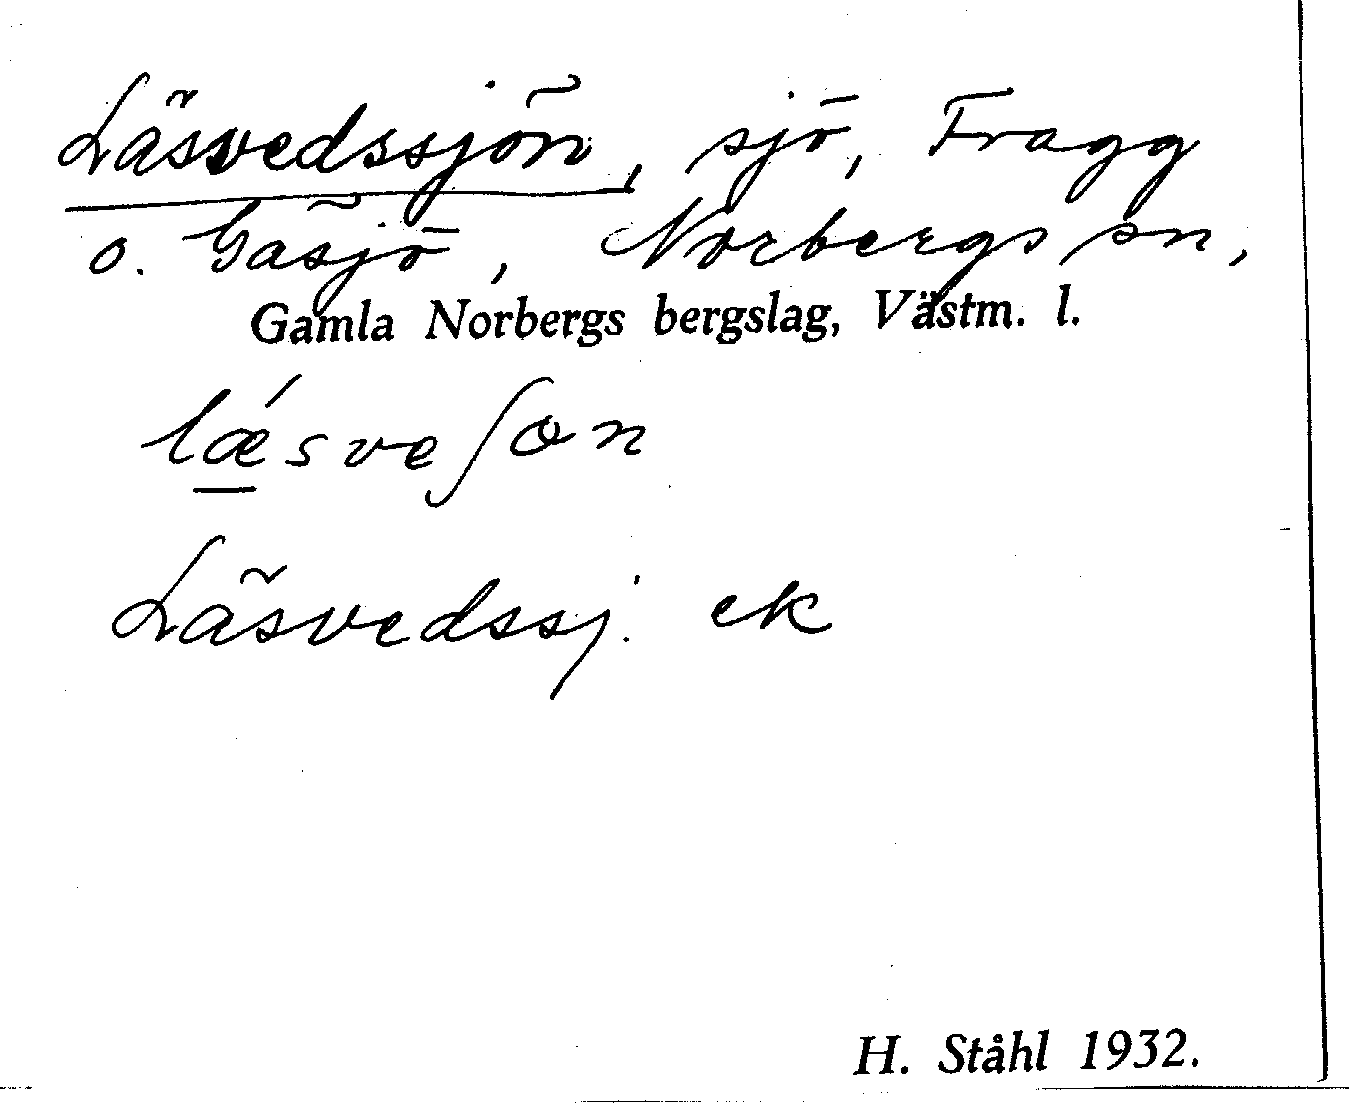 Läsvedssjön, sjö, Fragg
o. Gäsjö, Norbergs sn,
Gamla Norbergs bergslag, Västm. l.
lǽsveʃon
Läsvedssj. ek
H. Ståhl 1932.